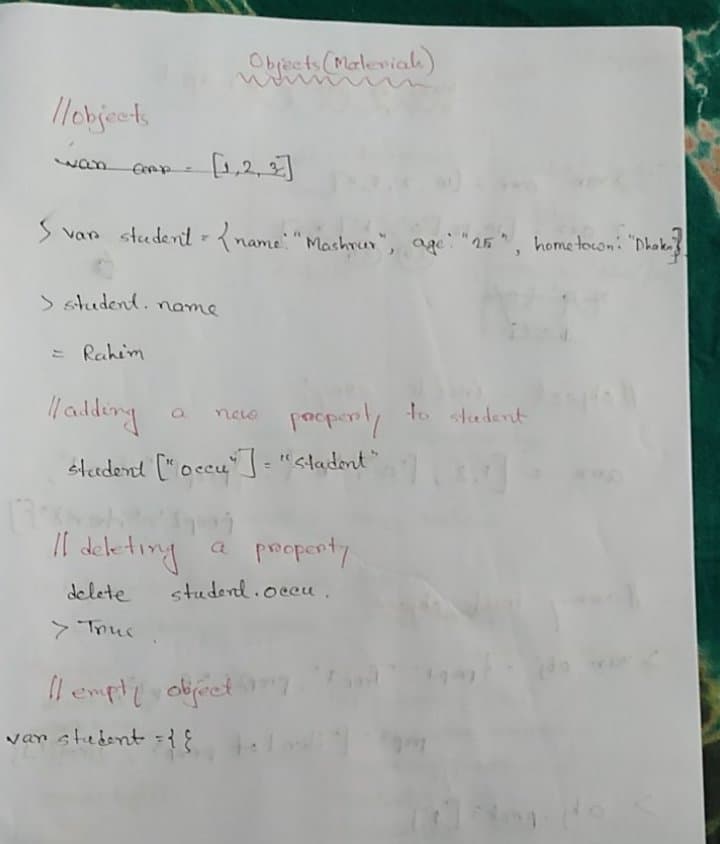 Objects (Materials)
//objects
var arr = [1, 2, 3]
> var student = {name: "Mashrur", age: "25", hometown: "Dhaka"}
> student.name
= Rahim
//adding a new property to student
student ["occu"] = "student"
// deleting a property
delete student.occu.
> True.
// empty object
var student = {}